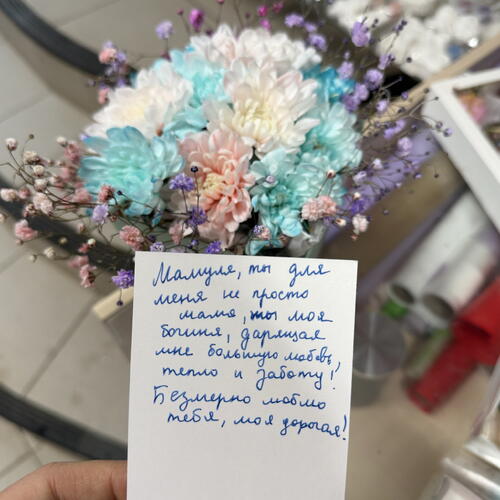 Мамуля, ты для
меня не просто
мама, ты моя
богиня, дарящая
мне большую любовь,
тепло и заботу!
Безмерно люблю
тебя, моя дорогая!